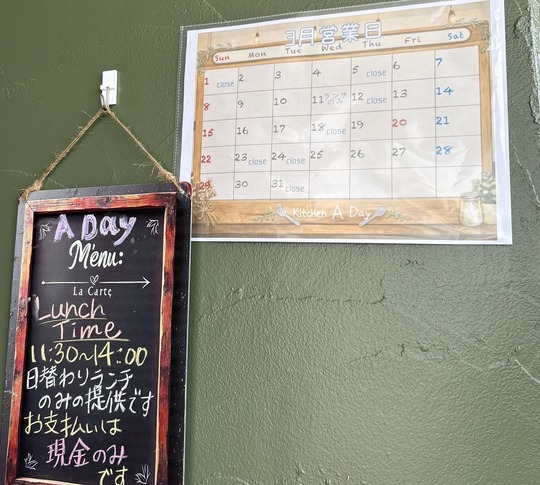 3月営業日
Sun Mon Tue Wed Thu Fri Sat
1 close 2 3 4 5 close 6 7
8 9 10 11 ランチのみ 12 close 13 14
15 16 17 18 close 19 20 21
22 23 close 24 close 25 26 27 28
29 30 31 close
Kitchen A Day
A Day
Menu:
La Carte
Lunch
Time
11:30~14:00
日替わりランチ
のみの提供です
お支払いは
現金のみ
です